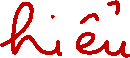 hiểu